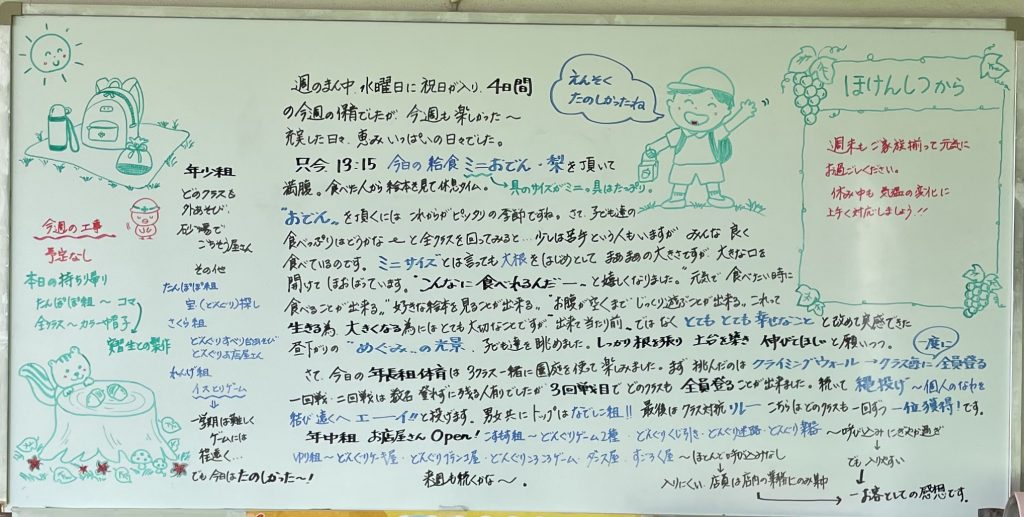 年少組
どのクラスも
外あそび、
砂場で
ごちそう屋さん
その他
たんぽぽ組
宝(どんぐり)探し
さくら組
どんぐりすべり台あそび
どんぐりお店屋さん
れんげ組
イスとりゲーム
一学期は難しく
ゲームには
程遠く…
でも今日はたのしかった〜!
今週の工事
予定なし
本日の持ち帰り
たんぽぽ組〜コマ
全クラス〜カラー帽子
実習生との製作
週のまん中、水曜日に祝日が入り、4日間
の今週の保育でしたが、今週も楽しかった〜
充実した日々、恵みいっぱいの日々でした。
只今 13:15 今日の給食 ミニおでん・梨を頂いて
満腹。食べた人から絵本を見て休息タイム。
具のサイズがミニ。具はたっぷり。
"おでん"を頂くには これからがピッタリの季節ですね。さて、子ども達の
食べっぷりはどうかな〜と全クラスを回ってみると…少しは苦手という人もいますが みんな良く
食べているのです。ミニサイズとは言っても大根をはじめとして まぁまぁの大きさですが、大きな口を
開けて ほおばっています。"こんなに食べれるんだー"と嬉しくなりました。"元気で食べたい時に
食べることが出来る。"好きな絵本を見ることが出来る。"お腹が空くまでじっくり遊ぶことが出来る。これって
生きる為、大きくなる為にはとても大切なことですが"出来て当たり前"ではなく とてもとても幸せなこと と改めて実感できた
昼下がりの"めぐみ"の光景、子ども達を眺めました。しっかり根を張り 土台を築き 伸びてほしいと願いつつ。
さて、今日の年長組体育は3クラス一緒に園庭を使って楽しみました。まず挑んだのは クライミングウォール→クラス毎に全員登る
一度に
一回戦・二回戦は数名登れずに残る人有りでしたが 3回戦目でどのクラスも 全員登ることが出来ました。続いて 縄投げ〜個人のなわを
結び遠くへ エーイ!!と投げます。男女共にトップはなでしこ組!! 最後はクラス対抗リレー こちらはどのクラスも一回ずつ一位獲得!です。
年中組 お店屋さん Open!
〜どんぐりゲーム2種・どんぐりくじ引き・どんぐり迷路・
〜呼び込みにぎやか過ぎ
でも入りやすい
ゆり組〜どんぐりケーキ屋・どんぐりブランコ屋・どんぐりころころゲーム・ダンス屋・すごろく屋〜ほとんど呼び込みなし
入りにくい、店員は店内の業務にのみ集中
→お客としての感想です。
来週も続くかな〜。
えんそく
たのしかったね
ほけんしつから
週末もご家族揃って元気に
お過ごしください。
休み中も気温の変化に
上手く対応しましょう!!